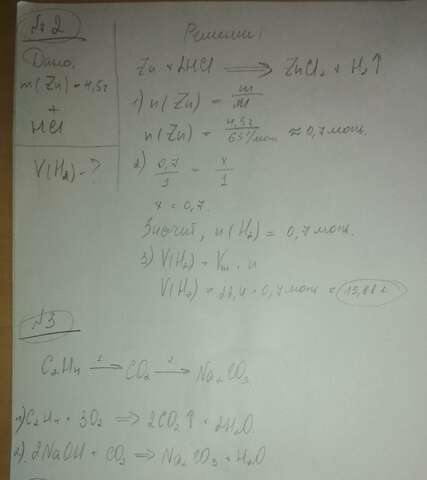 №2
Решение:
Дано:
m(Zn) = 4,5г
+
HCl
V(H₂) - ?
Zn + 2HCl ⟹ ZnCl₂ + H₂↑
1) n(Zn) = m/M
n(Zn) = 4,5г / 65г/моль ≈ 0,7 моль.
2) 0,7/1 = x/1
x = 0,7.
Значит, n(H₂) = 0,7 моль.
3) V(H₂) = Vm · n
V(H₂) = 22,4 · 0,7 моль = 15,68 л
№3
C₂H₄ →¹ CO₂ →² Na₂CO₃
1) C₂H₄ + 3O₂ ⟹ 2CO₂↑ + 2H₂O
2) 2NaOH + CO₂ ⟹ Na₂CO₃ + H₂O